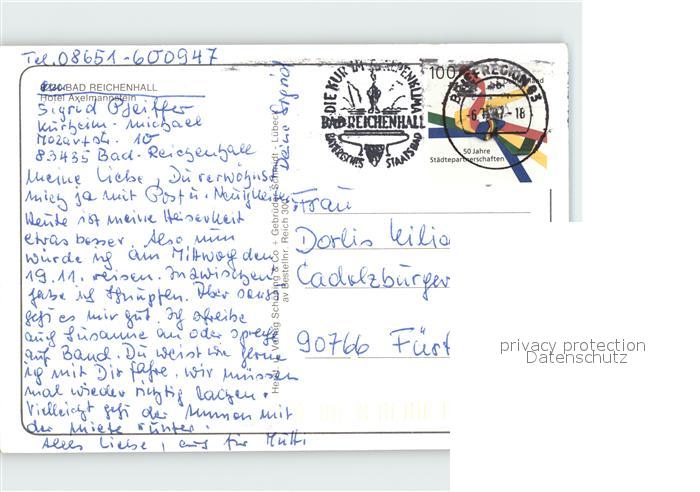 Tel. 08651-600947
BAD REICHENHALL
Hotel Axelmannstein
Sigrid Pfeiffer
Kurheim-Michael
Mozartstr. 10
83435 Bad-Reichenhall
Meine Liebe, Du verwöhnst
mich ja mit Post u. Neuigkeiten
Heute ist meine Heiserkeit
etwas besser. Also nun
würde ich am Mittwoch den
19.11. reisen. Inzwischen
habe ich Schnupfen. Aber sonst
geht es mir gut. Ich schreibe
auch Susanne an oder spreche
auf Band. Du weisst wie gerne
ich mit Dir fahre. Wir müssen
mal wieder richtig lachen.
Vielleicht geht der Mann mit
der Miete runter.
Alles Liebe, auch für Mutti
Deine Sigrid
Verlag Schöning & Co + Gebrüder Schmidt · Lübeck
Bestellnr. Reich 30
DIE KUR IM
BAD REICHENHALL
BAYERISCHES STAATSBAD
100
Deutschland
50 Jahre
Städtepartnerschaften
BRIEFREGION 83
-18
Frau
Dorlis Kilia
Cadolzburger
90766 Fürt
privacy protection
Datenschutz